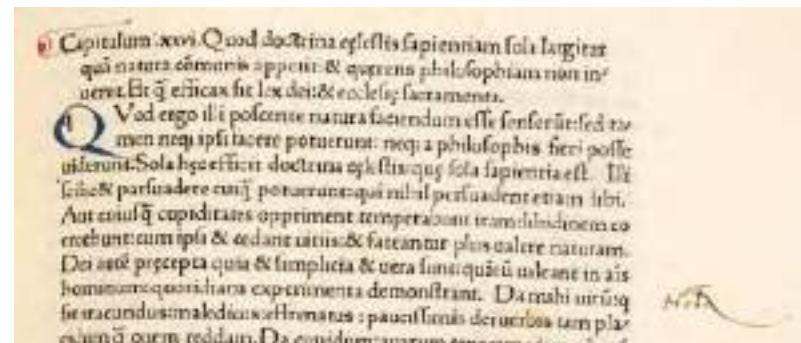 Capitulum .xxvi. Quod doctrina cęlestis sapientiam sola largitur
quā natura cōmunis appetit & querens philosophiam non in/
uenit. Et q̄ efficax sit lex dei: & ecclesię sacramenta.
QVod ergo illi poscente natura faciendum esse senserūt: sed ta/
men neqȝ ipsi facere potuerunt: neqȝ a philosophis fieri posse
uiderunt. Sola hęc efficit doctrina cęlestis: quę sola sapientia est. Illi
scilicet parsuadere cuiq̄ poterunt: qui nihil persuadent etiam sibi.
Aut cuiusq̄ cupiditates oppriment temperabunt iram libidinem co
ercebunt: cum ipsi & cedant uitiis: & fateantur plus ualere naturam.
Dei autē pręcepta quia & simplicia & uera sunt: quātū ualeant in aīs
hominum: quotidiana experimenta demonstrant. Da mihi uirū: q
sit iracundus: maledicus: effrenatus: paucissimis dei uerbis tam pla/
quem reddam. Da cupidum: auarum
Nota